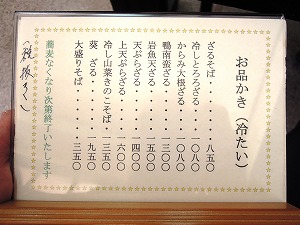 お品かき（冷たい）
ざるそば・・・・八五〇
冷しとろろざる・・・〇八〇
からみ大根ざる・・・〇八〇
鴨南蛮ざる・・・一三〇
岩魚天ざる・・・一五〇〇
天ぷらざる・・・一四〇〇
上天ぷらざる・・・一六〇〇
冷し山菜きのこそば・一三五〇
葵　ざる・・・・一九五〇
大盛りそば・・・・三五〇
蕎麦なくなり次第終了いたします